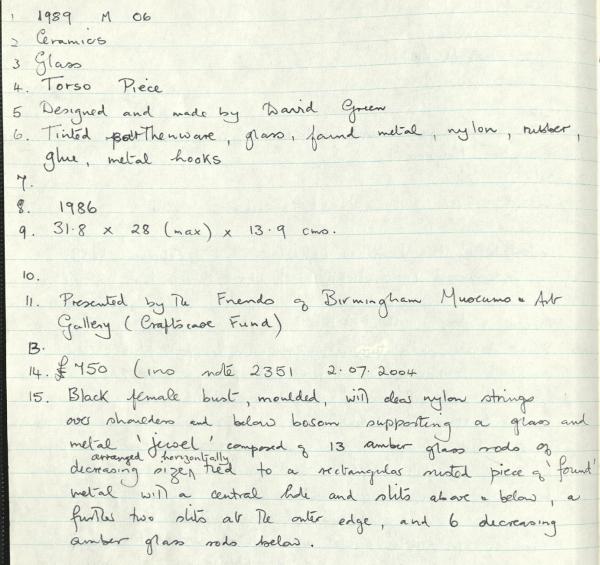 1 1989 M 06
2 Ceramics
3 Glass
4. Torso Piece
5 Designed and made by David Green
6. Tinted earthenware, glass, found metal, nylon, rubber,
glue, metal hooks
7.
8. 1986
9. 31.8 x 28 (max) x 13.9 cms.
10.
11. Presented by the Friends of Birmingham Museums & Art
Gallery (Craftscase Fund)
13.
14. £750 (ins note 2351 2.07.2004
15. Black female bust, moulded, with clear nylon strings
over shoulders and below bosom supporting a glass and
metal 'Jewel' composed of 13 amber glass rods of
arranged horizontally
decreasing size, tied to a rectangular rusted piece of 'found'
metal with a central hole and slits above & below, a
further two slits at the outer edge, and 6 decreasing
amber glass rods below.